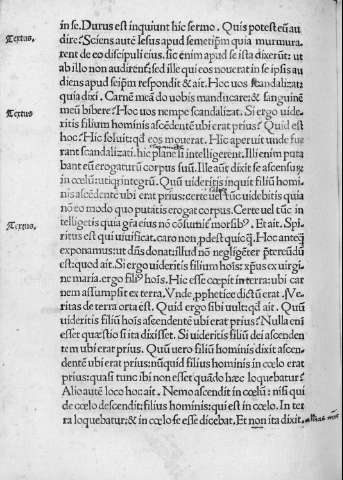 in se. Durus est inquiunt hic sermo. Quis potest eū au
Textus.
dire? Sciens autē Iesus apud semetip̄m quia murmura
rent de eo discipuli eius. sic enim apud se ista dixerūt: ut
ab illo non audirent; sed ille qui eos nouerat in se ipsis au
diens apud seip̄m respondit & ait. Hoc uos scandalizat:
quia dixi. Carnē meā do uobis manducare: & sanguinē
Textus
meū bibere? Hoc uos nempe scandalizat. Si ergo uide
ritis filium hominis ascēdentē ubi erat prius? Quid est
hoc? Hic soluit: qd eos mouerat. Hic aperuit unde fue
rant scandalizati. hic plane si intelligerent. Illi enim puta
bant eū erogaturū corpus suū. Ille aūt dixit se ascensurū
in cœlū: utiqꝫ integrū. Quū uideritis inquit filiū homi
nis ascēdente ubi erat prius: certe uel tūc uidebitis quia
nō eo modo quo putatis erogat corpus. Certe uel tūc in
Textus.
telligetis quia gr̄a eius nō cōsumit᷑ morsibꝰ. Et ait. Spi
ritus est qui uiuificat. caro non ꝓdest quicq̄. Hoc anteq̄
exponamus: ut dn̄s donat: illud nō negligēter p̄tereūdū
est: quod ait. Si ergo uideritis filium hoīs. xp̄us ex uirgi
ne maria. ergo filiꝰ hoīs. Hic esse cœpit in terra: ubi car
nem assumpsit ex terra. Vnde ꝓphetice dictū erat. Ve
ritas de terra orta est. Quid ergo sibi uult: qd ait. Quū
uideritis filiū hoīs ascendentē ubi erat prius? Nulla eni
esset quæstio si ita dixisset. Si uideritis filiū dei ascenden
tem ubi erat prius. Quū uero filiū hominis dixit ascen
dentē ubi erat prius: nūquid filius hominis in cœlo erat
prius: quasi tunc ibi non esset quādo hæc loquebatur?
Alio autē loco hoc ait. Nemo ascendit in cœlū: nisi qui
de cœlo descendit: filius hominis: qui est in cœlo. In ter
ra loquebatur: & in cœlo se esse dicebat. Et non ita dixit.